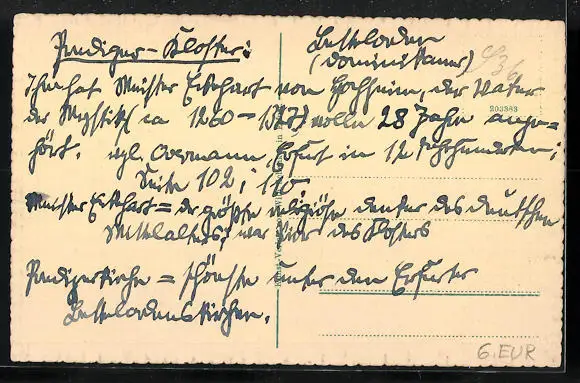 Prediger-Kloster:
Bettelorden
(Dominikaner)
Ihm hat Meister Eckehart von Hochheim, der Vater
der Mystik (ca 1260 - 1327) volle 28 Jahre ange=
203383
hört. vgl. Overmann, Erfurt in 12 Jahrhunderten;
Seite 102; 110
Meister Eckehart = der größte religiöse Denker des deutschen
Mittelalters; war Prior des Klosters
Predigerkirche = schönste unter den Erfurter
Bettelordenskirchen.
6.EUR